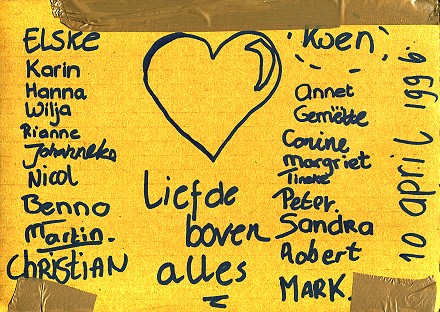 ELSKE
Karin
Hanna
Wilja
Rianne
Johanneke
Nicol
Benno
Martin.
CHRISTIAN
Liefde
boven
alles
Koen
Annet
Gemètte
Corine
Margriet
Tineke
Peter.
Sandra
Robert
MARK.
10 april 1996.